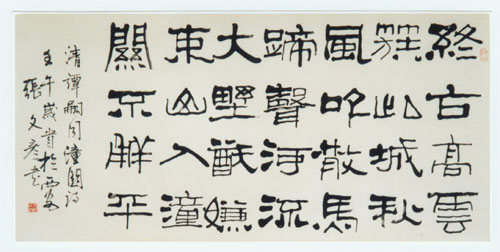 終古高雲
簇此城秋
風吹散馬
蹄聲河流
大墅猷嫌
束山入潼
關不解平
清譚嗣同潼關詩
壬午歲首於西安
張文彦書